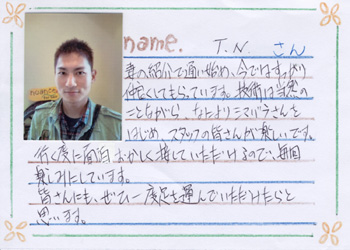 nuance
name. T.N. さん
妻の紹介で通い始め、今ではすっかり
仲良くしてもらっています。技術は当然の
ことながら、なによりニシハラさんを
はじめ、スタッフの皆さんが楽しいです。
行く度に面白おかしく接していただけるので、毎回
楽しみにしています。
皆さんにも、ぜひ一度足を運んでいただけたらと
思います。